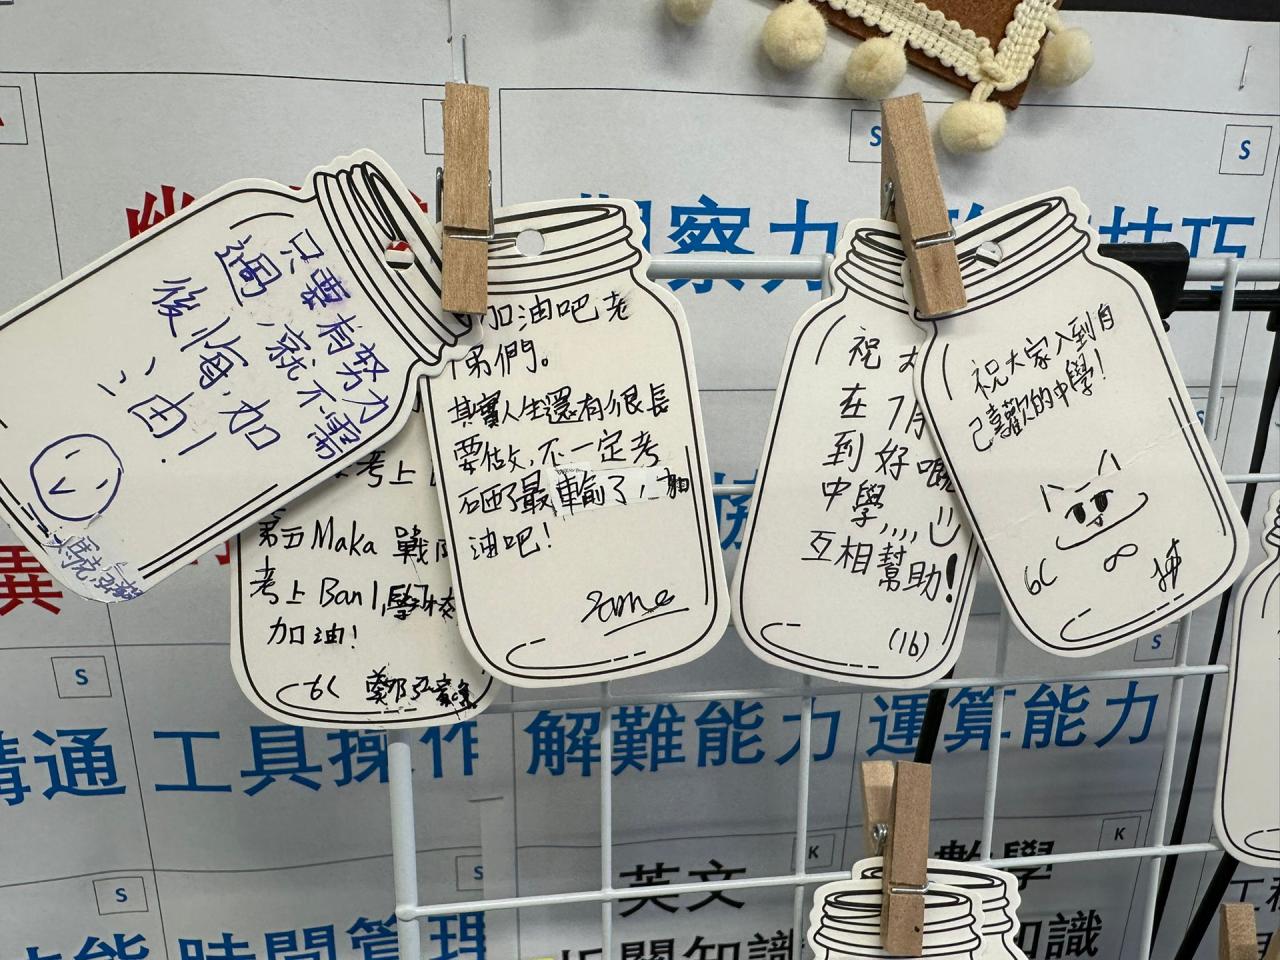 只要有努力
過，就不需
後悔，加
油！
考上
第五 Maka 戰
考上 Ban 1,學校
加油！
6C 鄭
加油吧老
弟們。
其實人生還有很長
要做，不一定考
砸了最輸了，加
油吧！
祝
在 7月
到好嘅
中學,,,,
互相幫助！
(16)
祝大家入到自
己喜歡的中學！
6C
S
S
觀察力
技巧
S
溝通
工具操作
解難能力
運算能力
S
S
S
K
K
時間管理
英文
數學
相關知識
識